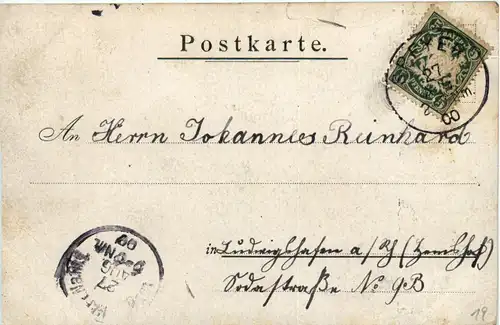 Postkarte.
SPEYER
27
00
An Herrn Johannes Reinhard
in Ludwigshafen a/Rh (Hemshof)
Sodastraße No 9 B
27
AUG
00
19